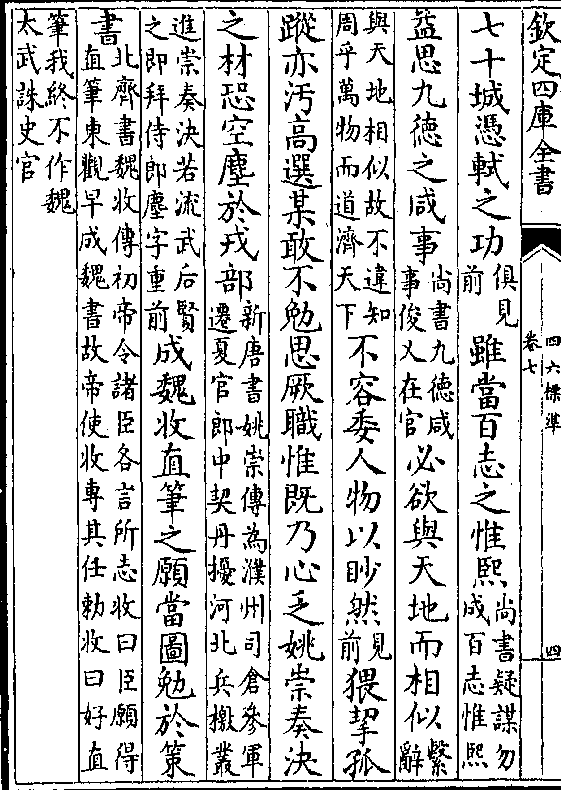 欽定四庫全書
四六標準
卷七
四
七十城憑軾之功俱見前雖當百志之惟熙尚書疑謀勿成百志惟熙
益思九德之咸事尚書九德咸事俊乂在官必欲與天地而相似繫辭
與天地相似故不違知周乎萬物而道濟天下不容委人物以眇然見前猥挈孤
蹤亦汚高選某敢不勉思厥職惟既乃心乏姚崇奏決
之材恐空塵於戎部新唐書姚崇傳為濮州司倉參軍遷夏官郎中契丹擾河北兵檄叢
進崇奏決若流武后賢之即拜侍郎塵字重前成魏收直筆之願當圖勉於策
書北齊書魏收傳初帝令諸臣各言所志收曰臣願得直筆東觀早成魏書故帝使收專其任勅收曰好直
筆我終不作魏太武誅史官